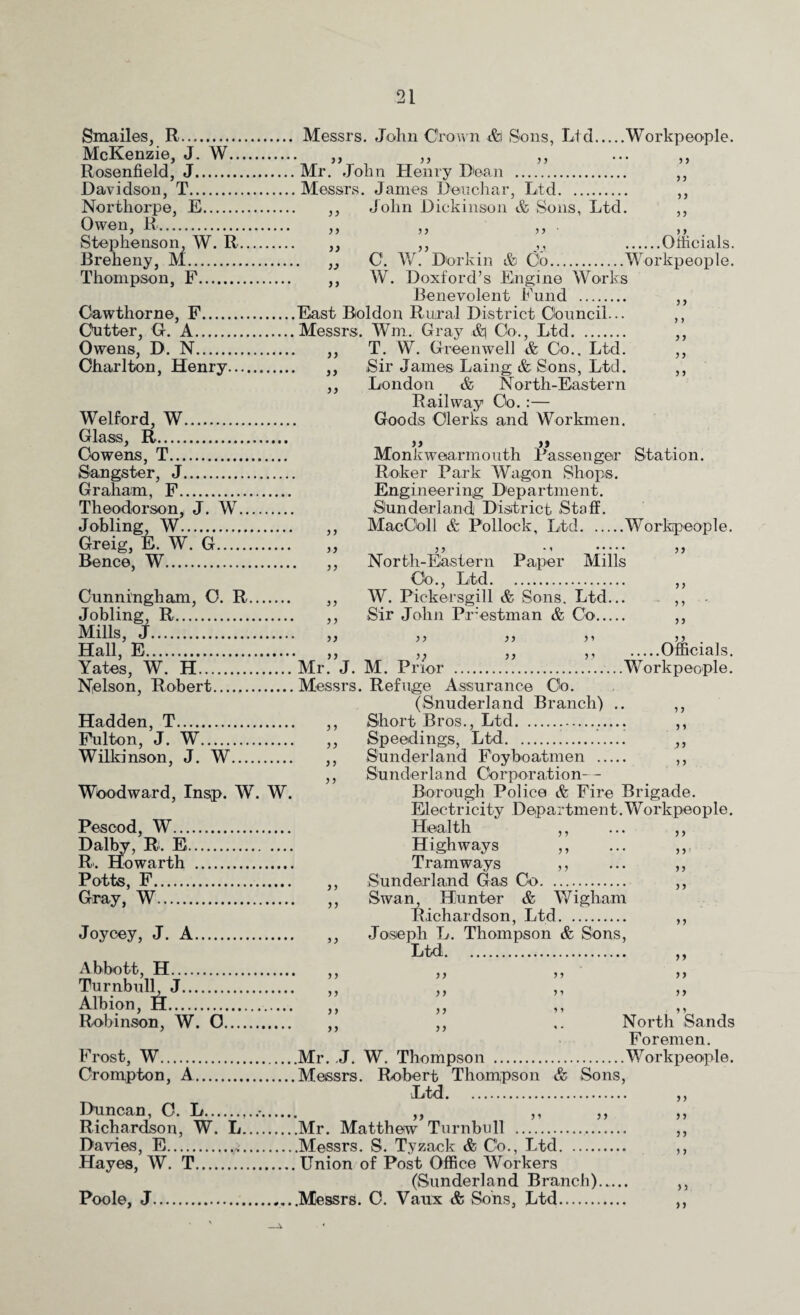 21
Smailes, R. .......... Messrs. John Crown & Sons, Ltd.....Workpeople.
McKenzie, J. W. .......... ,, ,, ,, ... ,,
Rosenfield, J. .......... Mr. John Henry Dean .......... ,,
Davidson, T. .......... Messrs. James Deuchar, Ltd. .......... ,,
Northorpe, E. .......... ,, John Dickinson & Sons, Ltd. ,,
Owen, R. .......... ,, ,, ,, ,,
Stephenson, W. R. .......... ,, ,, ,, ......Officials.
Breheny, M. .......... ,, C. W. Dorkin & Co. ..........Workpeople.
Thompson, F. .......... ,, W. Doxford's Engine Works
Benevolent Fund .......... ,,
Cawthorne, F. ..........East Boldon Rural District Council... ,,
Cutter, G. A. .......... Messrs. Wm. Gray & Co., Ltd. ........ ,,
Owens, D. N. .......... ,, T. W. Greenwell & Co.. Ltd. ,,
Charlton, Henry. .......... ,, Sir James Laing & Sons, Ltd. ,,
,, London & North-Eastern
Railway Co. :—
Welford, W. .......... Goods Clerks and Workmen.
Glass, R. .......... ,, ,,
Cowens, T. .......... Monkwearmouth Passenger Station.
Sangster, J. .......... Roker Park Wagon Shops.
Graham, F. .......... Engineering Department.
Theodorson, J. W. .......... Sunderland District Staff.
Jobling, W. .......... ,, MacColl & Pollock, Ltd. ......Workpeople.
Greig, E. W. G. .......... ,, ,, ., ..... ,,
Bence, W. .......... ,, North-Eastern Paper Mills
Co., Ltd. .......... ,,
Cunningham, C. R. ....... ,, W. Pickersgill & Sons. Ltd... ,,
Jobling, R. .......... ,, Sir John Priestman & Co..... ,,
Mills, J. .......... ,, ,, ,, ,, ,,
Hall, E. .......... ,, ,, ,, ,, .....Officials.
Yates, W. H. .......... Mr. J. M. Prior ..........Workpeople.
Nelson, Robert. .......... Messrs. Refuge Assurance Co.
(Snuderland Branch) .. ,,
Hadden, T. .......... ,, Short Bros., Ltd. .......... ,,
Fulton, J. W. .......... ,, Speedings, Ltd. .......... ,,
Wilkinson, J. W. .......... ,, Sunderland Foyboatmen ..... ,,
,, Sunderland Corporation--
Woodward, Insp. W. W. Borough Police & Fire Brigade.
Electricity Department.Workpeople.
Pescod, W. .......... Health ,, ... ,,
Dalby, R. E. .......... Highways ,, ... ,,
R. Howarth .......... Tramways ,, ... ,,
Potts, F. .......... ,, Sunderland Gas Co. .......... ,,
Gray, W. .......... ,, Swan, Hunter & Wigham
Richardson, Ltd. .......... ,,
Joycey, J. A. .......... ,, Joseph L. Thompson & Sons,
Ltd. .......... ,,
Abbott, H. .......... ,, ,, ,, ,,
Turnbull, J. .......... ,, ,, ,, ,,
Albion, H. .......... ,, ,, ,, ,,
Robinson, W. O. .......... ,, ,, .. North Sands
Foremen.
Frost, W. ..........Mr. J. W. Thompson ..........Workpeople.
Crompton, A. ..........Messrs. Robert Thompson & Sons,
Ltd. .......... ,,
Duncan, C. L. .......... ,, ,, ,, ,,
Richardson, W. L. ........Mr. Matthew Turnbull .......... ,,
Davies, E. ..........Messrs. S. Tyzack & Co., Ltd. .......... ,,
Hayes, W. T. .......... Union of Post Office Workers
(Sunderland Branch)..... ,,
Poole, J. ..........Messrs. C. Vaux & Sons, Ltd. .......... ,,